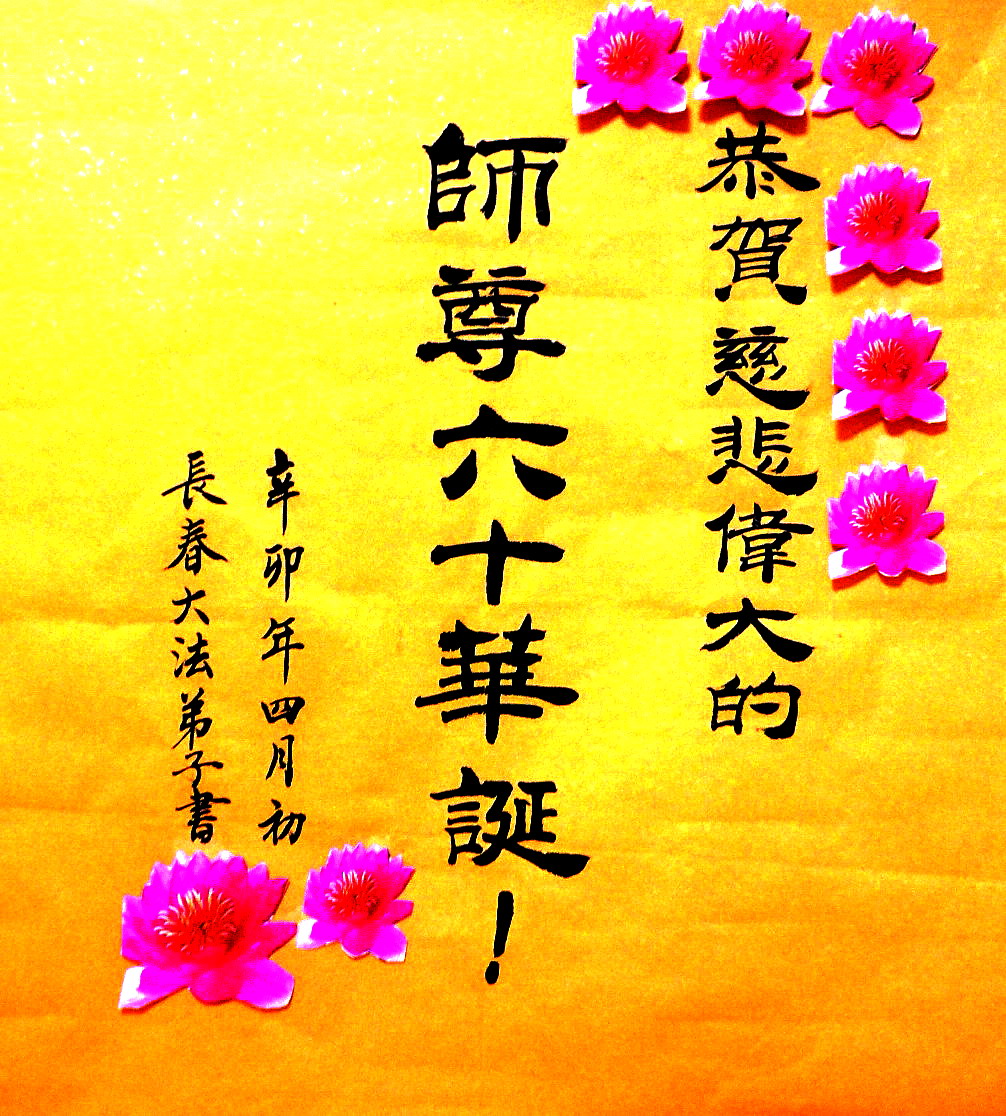 恭賀慈悲偉大的
師尊六十華誕！
辛卯年四月初
長春大法弟子書